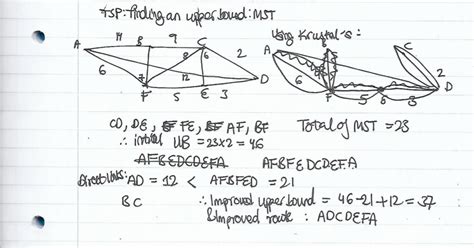 TSP: Finding an upper bound: MST
Using Kruskal's:
A 11 B 9 C
6 8 6 2
7 12 D
F 5 E 3
A C
6 2
F 5 6 3 D
CD, DE, FE, AF, BF Total of MST = 23
∴ initial UB = 23x2 = 46
AFBEDCDEFA AFBFEDCDEFA
Direct links: AD = 12 < AFBFED = 21
BC ∴ Improved upper bound = 46-21+12 = 37
& Improved route: ADCDEFA